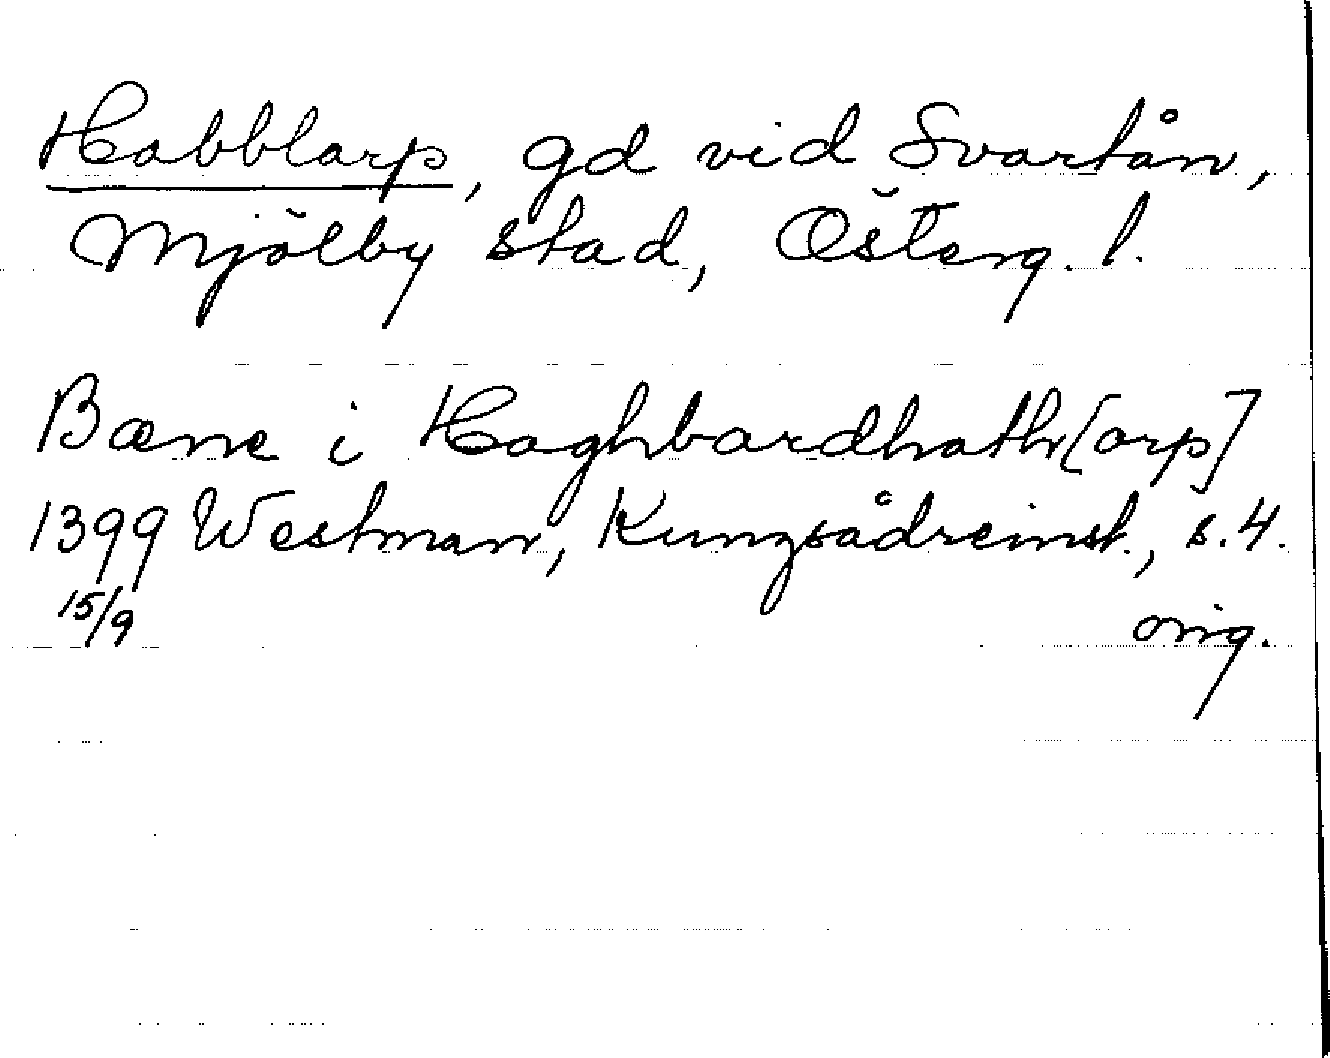 Habblarp, gd vid Svartån,
Mjölby stad, Österg. l.
Bæne i Haghbardhathr[orp]
1399 Westman, Kungsådreinst., s. 4.
15/9 orig.